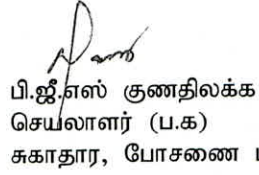 பி.ஜீ.எஸ் குணதிலக்க
செயலாளர் (ப.க)
சுகாதார, போசணை